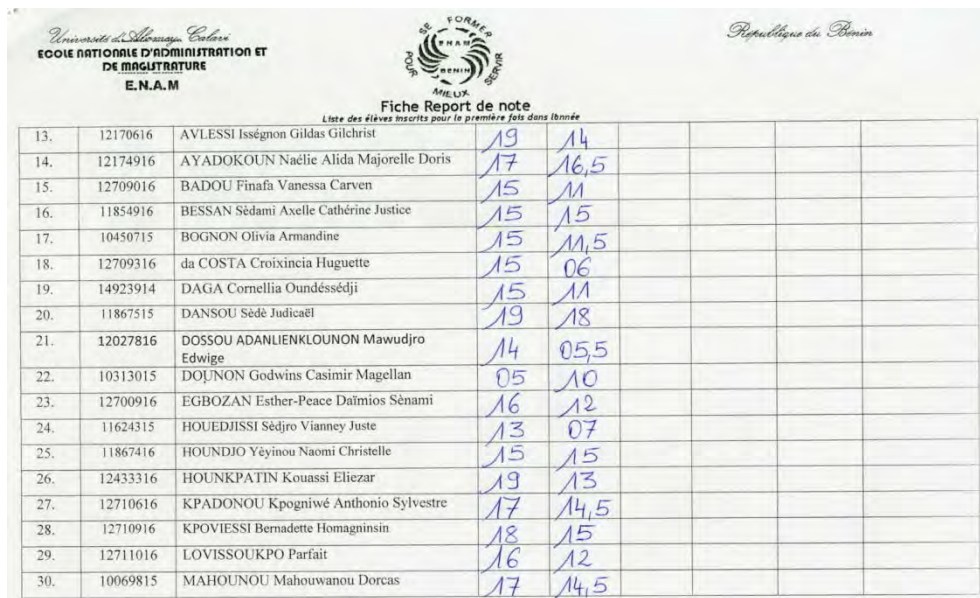 Université d'Abomey Calavi
ECOLE NATIONALE D'ADMINISTRATION ET
DE MAGISTRATURE
E.N.A.M
SE FORMER
POUR
MIEUX
SERVIR
ENAM
BENIN
République du Bénin
Fiche Report de note
Liste des élèves inscrits pour la première fois dans lannée
13. 12170616 AVLESSI Isségnon Gildas Gilchrist 19 14
14. 12174916 AYADOKOUN Naélie Alida Majorelle Doris 17 16,5
15. 12709016 BADOU Finafa Vanessa Carven 15 11
16. 11854916 BESSAN Sèdami Axelle Cathérine Justice 15 15
17. 10450715 BOGNON Olivia Armandine 15 11,5
18. 12709316 da COSTA Croixincia Huguette 15 06
19. 14923914 DAGA Cornellia Oundéssédji 15 11
20. 11867515 DANSOU Sèdè Judicaël 19 18
21. 12027816 DOSSOU ADANLIENKLOUNON Mawudjro
Edwige 14 05,5
22. 10313015 DOUNON Godwins Casimir Magellan 05 10
23. 12700916 EGBOZAN Esther-Peace Daïmios Sènami 16 12
24. 11624315 HOUEDJISSI Sèdjro Vianney Juste 13 07
25. 11867416 HOUNDJO Yèyinou Naomi Christelle 15 15
26. 12433316 HOUNKPATIN Kouassi Eliezar 19 13
27. 12710616 KPADONOU Kpogniwé Anthonio Sylvestre 17 14,5
28. 12710916 KPOVIESSI Bernadette Homagninsin 18 15
29. 12711016 LOVISSOUKPO Parfait 16 12
30. 10069815 MAHOUNOU Mahouwanou Dorcas 17 14,5